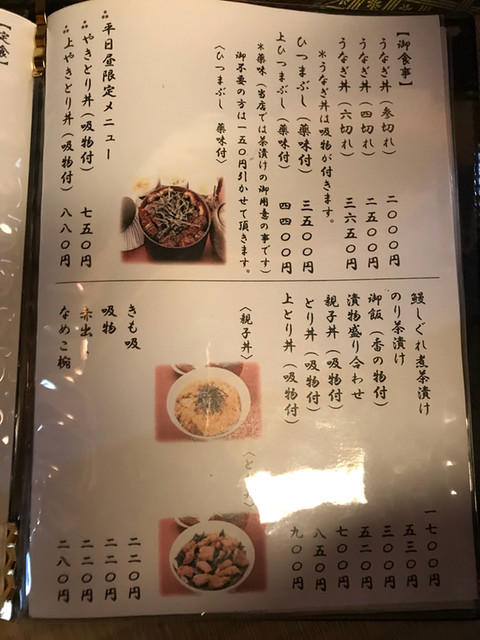 【御食事】
うなぎ丼（参切れ） 二〇〇〇円
うなぎ丼（四切れ） 二五〇〇円
うなぎ丼（六切れ） 三六五〇円
＊うなぎ丼は吸物が付きます。
ひつまぶし（薬味付） 三五〇〇円
上ひつまぶし（薬味付） 四四〇〇円
＊薬味（当店では茶漬けの御用意の事です）
御不要の方は一五〇円引かせて頂きます。
〈ひつまぶし 薬味付〉
平日昼限定メニュー
やきとり丼（吸物付） 七五〇円
上やきとり丼（吸物付） 八八〇円
鰻しぐれ煮茶漬け 一七〇〇円
のり茶漬け 五三〇円
御飯（香の物付） 三〇〇円
漬物盛り合わせ 五二〇円
親子丼（吸物付） 七〇〇円
とり丼（吸物付） 八五〇円
上とり丼（吸物付） 九〇〇円
〈親子丼〉
きも吸 二二〇円
吸物 二二〇円
赤出し 二二〇円
なめこ椀 二八〇円
【定食】